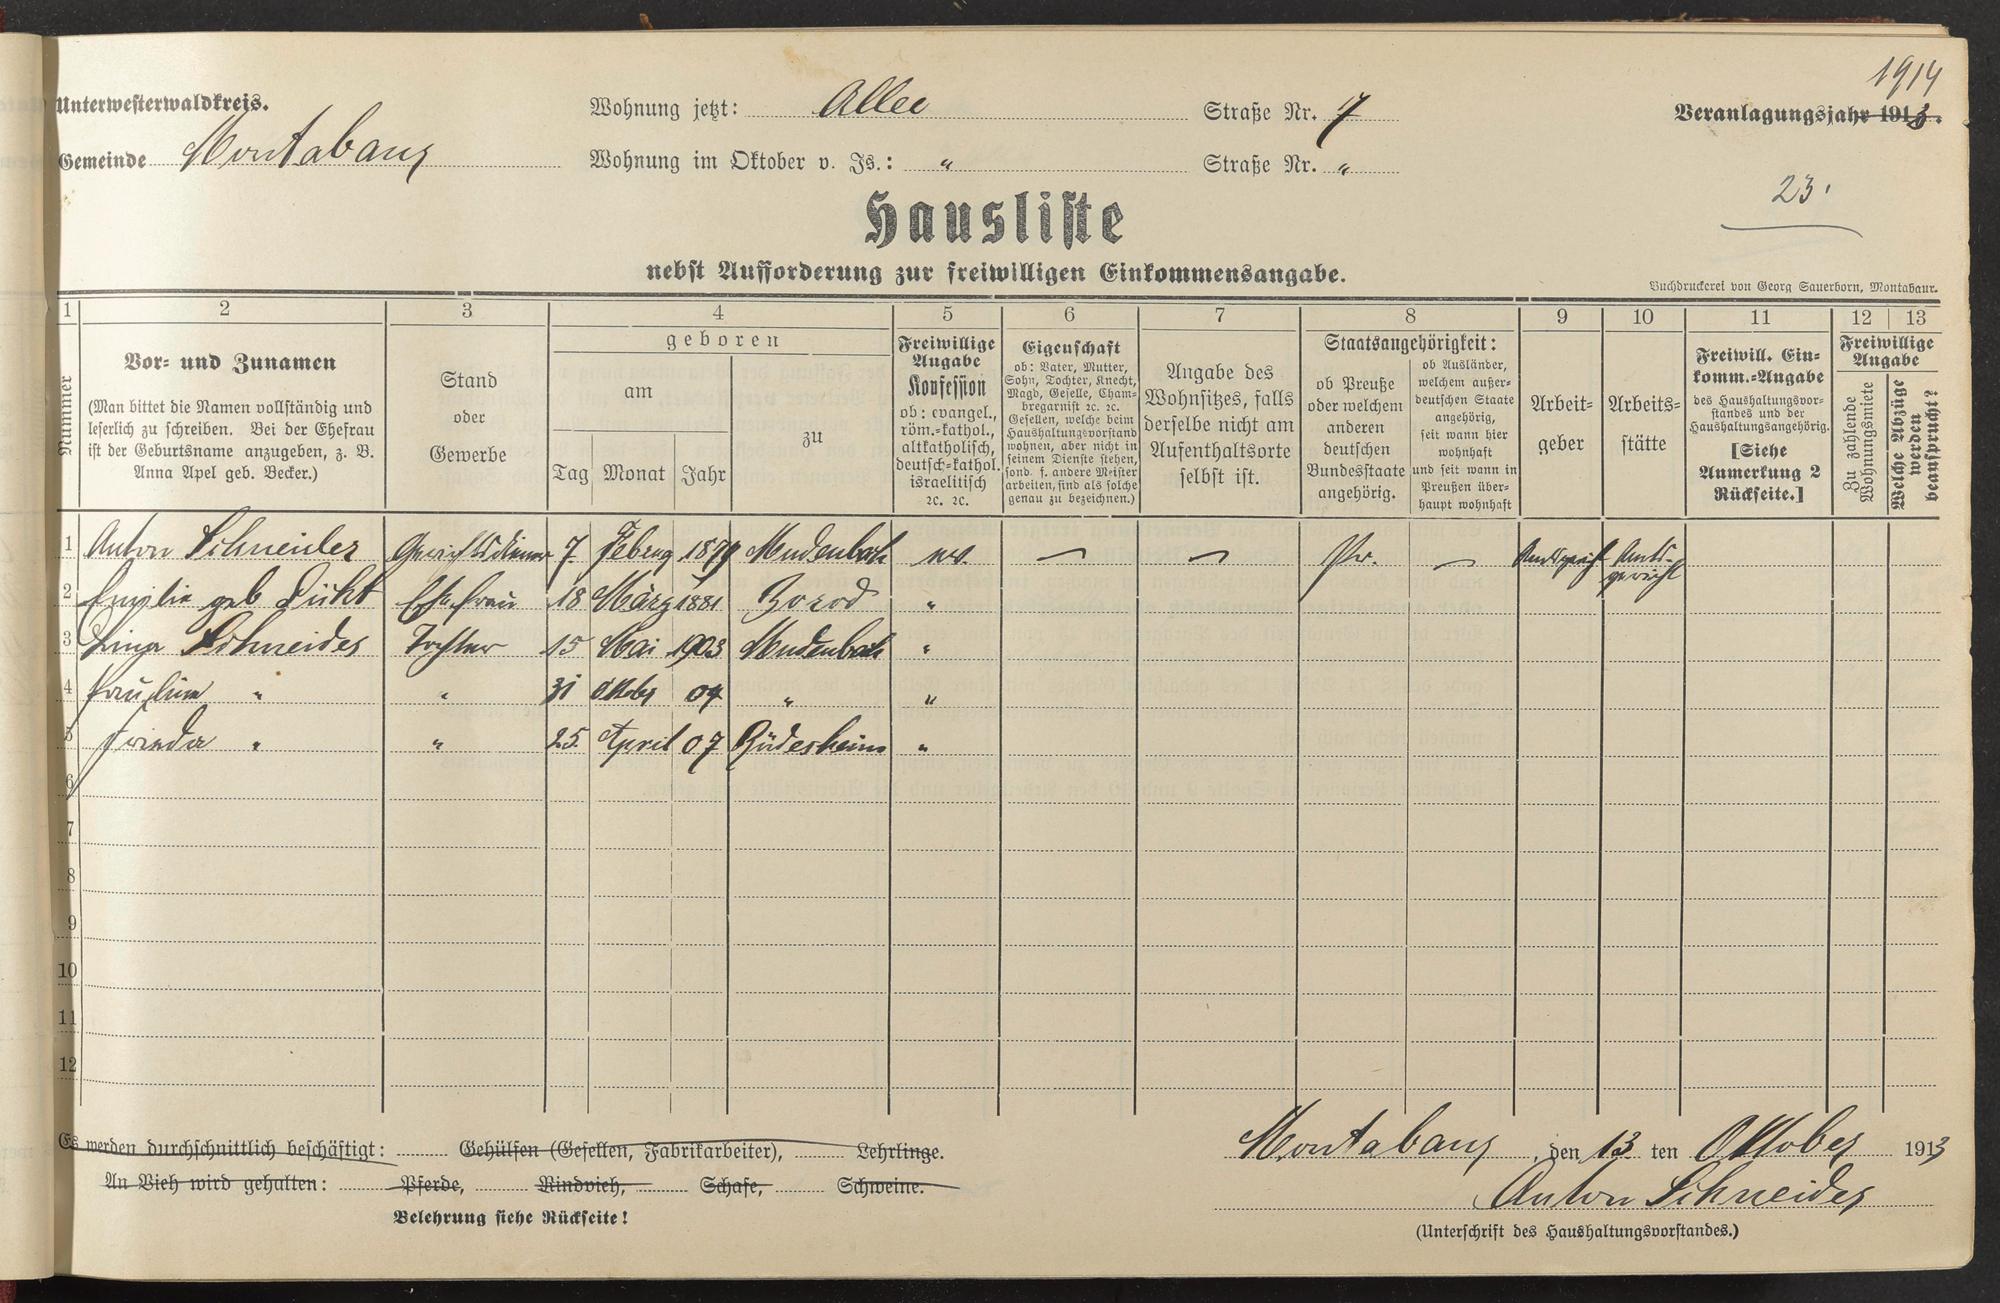 1914
Unterwesterwaldkreis. Wohnung jetzt: Allee Straße Nr. 7 Veranlagungsjahr 1913.
Gemeinde Montabaur Wohnung im Oktober v. Js.: " Straße Nr. "
23.
Hausliste
nebst Aufforderung zur freiwilligen Einkommensangabe.
Buchdruckerei von Georg Sauerborn, Montabaur.
1 2 3 4 5 6 7 8 9 10 11 12 13
Nummer
Vor- und Zunamen
(Man bittet die Namen vollständig und
leserlich zu schreiben. Bei der Ehefrau
ist der Geburtsname anzugeben, z. B.
Anna Apel geb. Becker.)
Stand
oder
Gewerbe
geboren
am
Tag Monat Jahr
zu
Freiwillige
Angabe
Konfession
ob: evangel.,
röm.-kathol.,
altkatholisch,
deutsch-kathol.
israelitisch
ꝛc. ꝛc.
Eigenschaft
ob: Vater, Mutter,
Sohn, Tochter, Knecht,
Magd, Geselle, Cham-
bregarnist ꝛc. ꝛc.
Gesellen, welche beim
Haushaltungsvorstand
wohnen, aber nicht in
seinem Dienste stehen,
sond. f. andere Meister
arbeiten, sind als solche
genau zu bezeichnen.)
Angabe des
Wohnsitzes, falls
derselbe nicht am
Aufenthaltsorte
selbst ist.
Staatsangehörigkeit:
ob Preuße
oder welchem
anderen
deutschen
Bundesstaate
angehörig.
ob Ausländer,
welchem außer-
deutschen Staate
angehörig,
seit wann hier
wohnhaft
und seit wann in
Preußen über-
haupt wohnhaft
Arbeit-
geber
Arbeits-
stätte
Freiwill. Ein-
komm.-Angabe
des Haushaltungsvor-
standes und der
Haushaltungsangehörig.
[Siehe
Anmerkung 2
Rückseite.]
Freiwillige
Angabe
Zu zahlende
Wohnungsmiete
Welche Abzüge
werden
beansprucht?
1 Anton Schneider Gerichtsdiener 7. Februar 1879 Mudenbach ev. — — Pr. — Amtsgericht Amts-
gericht
2 Emilie geb Ehefrau 18 März 1881 Borod "
3 Lina Schneider Tochter 15 Mai 1903 Mudenbach "
4 Pauline " " 31 Oktober 04 " "
5 Frieda " " 25. April 07 Rüdesheim "
6
7
8
9
10
11
12
Es werden durchschnittlich beschäftigt: Gehülfen (Gesellen, Fabrikarbeiter), Lehrlinge.
An Vieh wird gehalten: Pferde, Rindvieh, Schafe, Schweine.
Belehrung siehe Rückseite!
Montabaur, den 13. ten Oktober 1913
Anton Schneider
(Unterschrift des Haushaltungsvorstandes.)